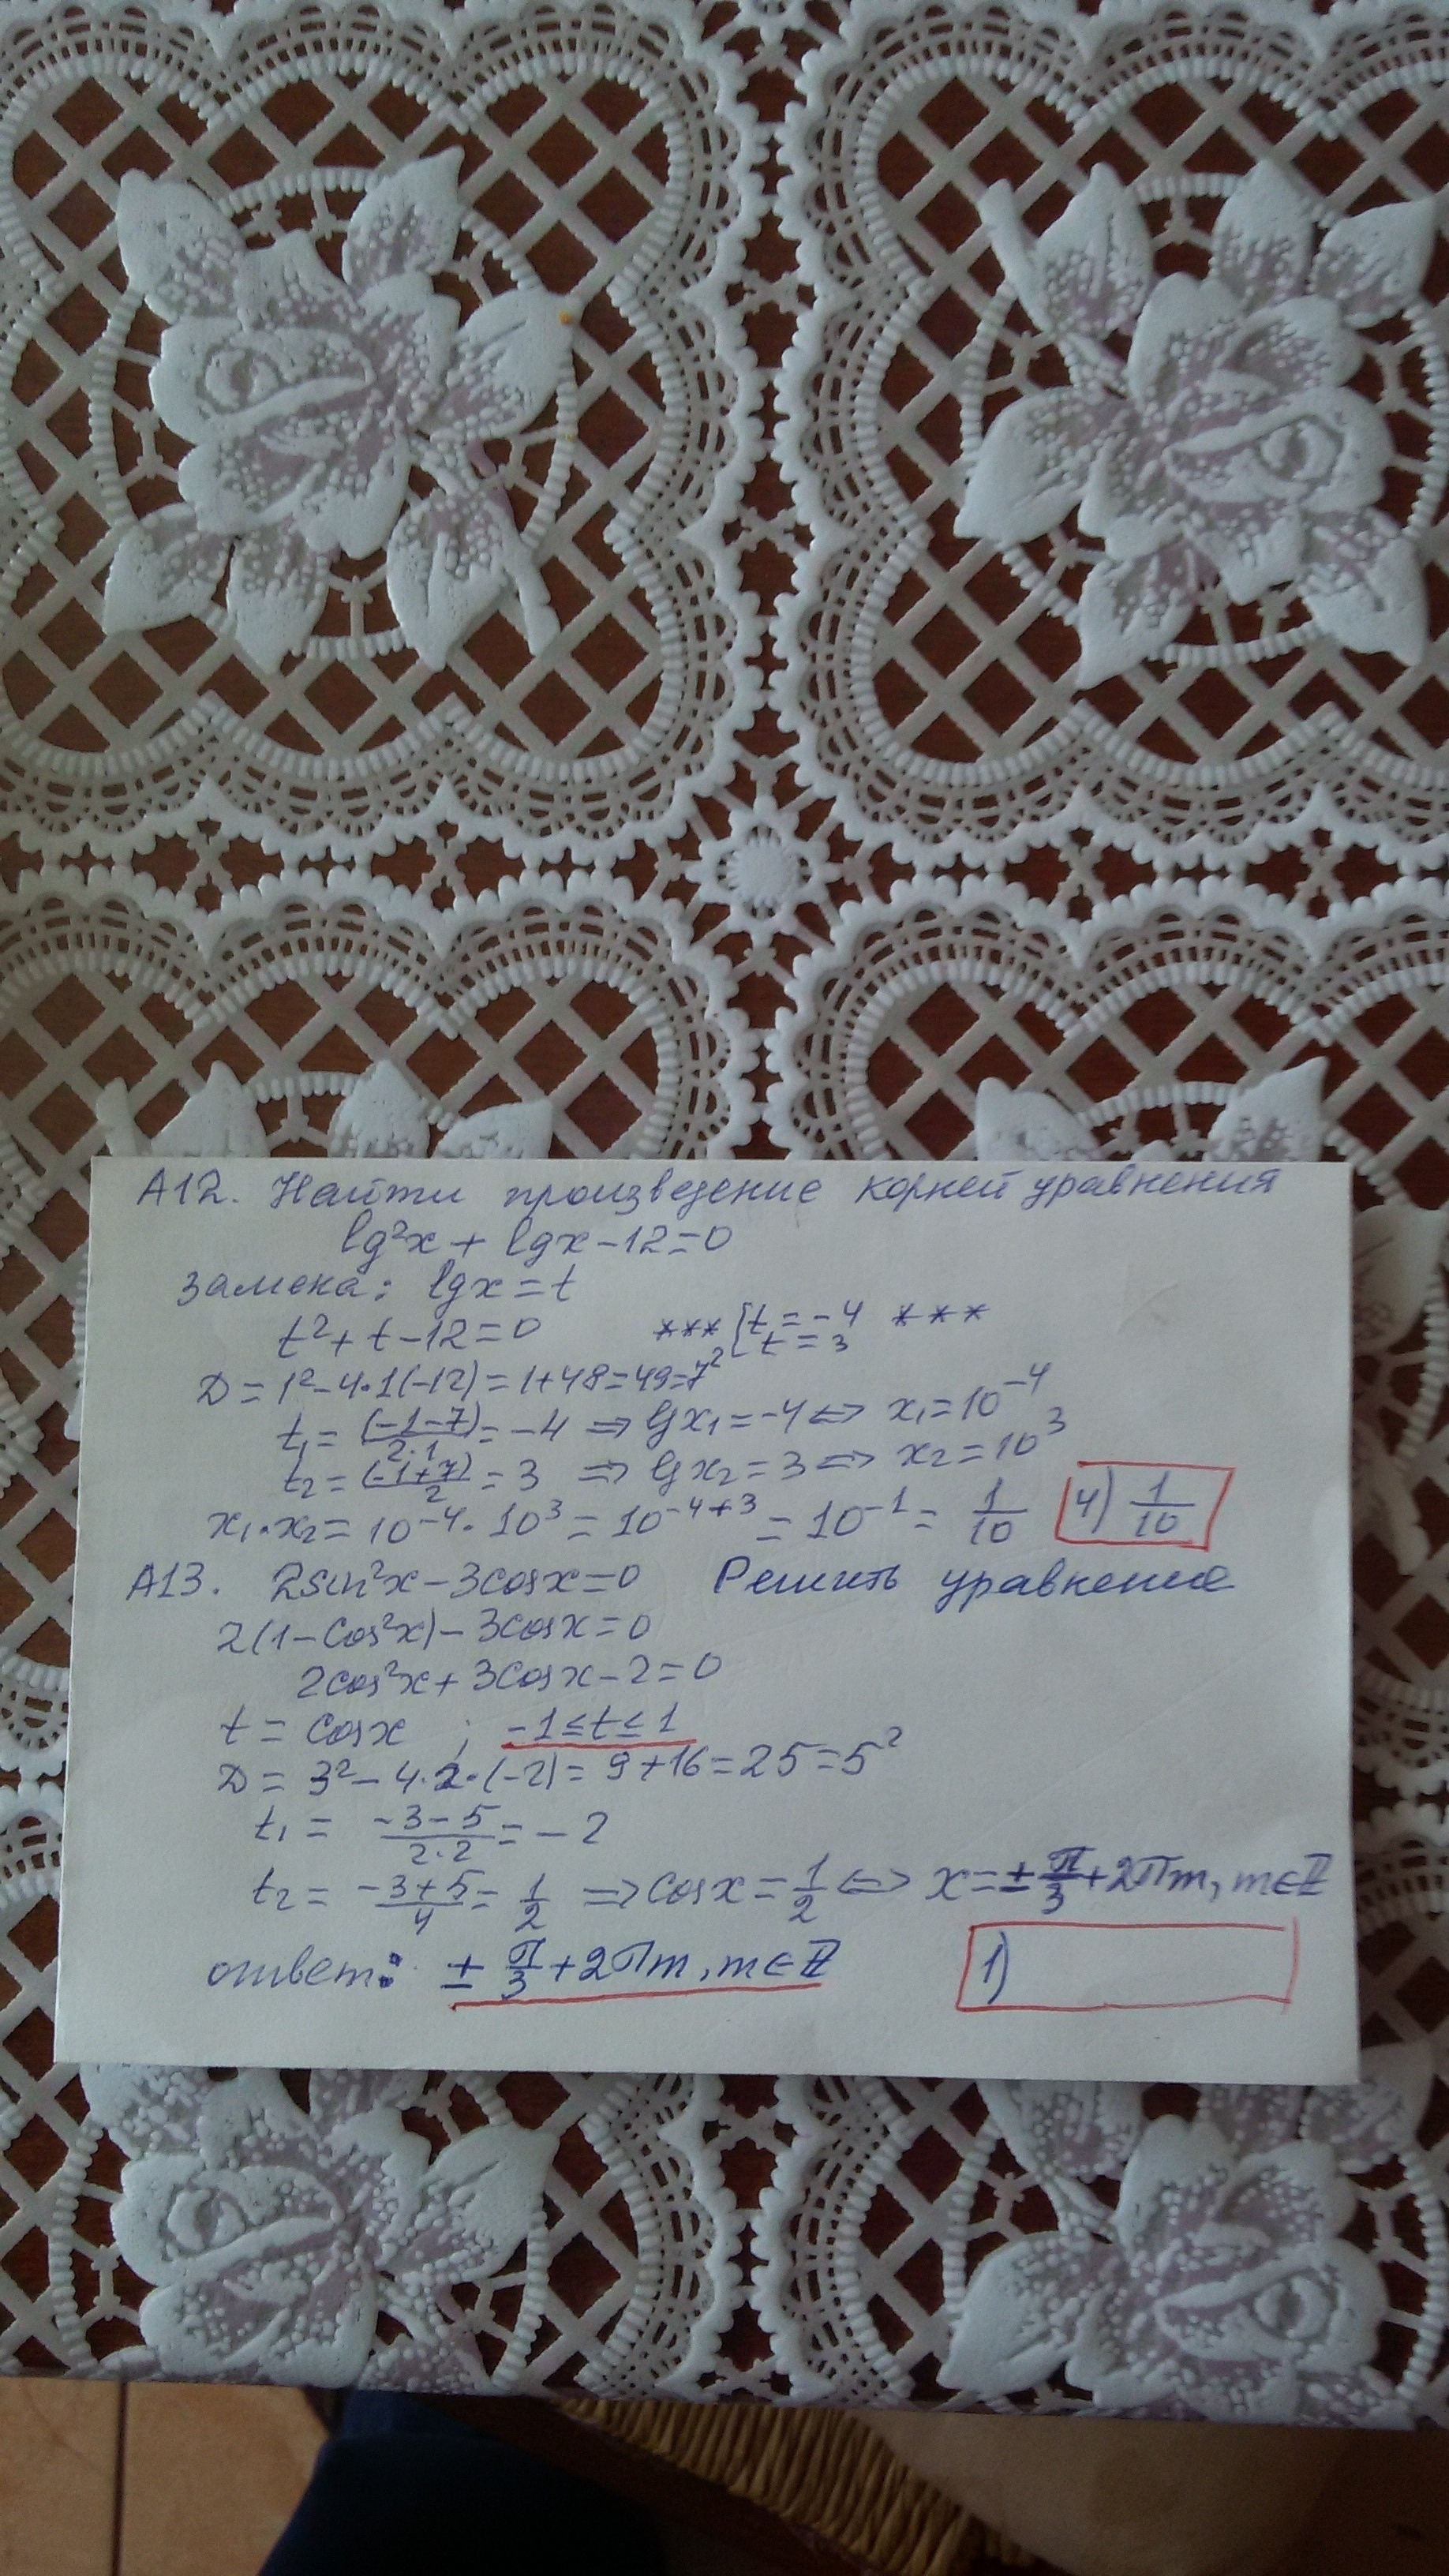 А12. Найти произведение корней уравнения
lg²x + lgx - 12 = 0
замена: lgx = t
t² + t - 12 = 0 *** [t = -4 t = 3 ***
D = 1² - 4·1(-12) = 1 + 48 = 49 = 7²
t₁ = (-1-7)/2·1 = -4 ⇒ lgx₁ = -4 ⇔ x₁ = 10⁻⁴
t₂ = (-1+7)/2 = 3 ⇒ lgx₂ = 3 ⇔ x₂ = 10³
x₁·x₂ = 10⁻⁴·10³ = 10⁻⁴⁺³ = 10⁻¹ = 1/10 4) 1/10
А13. 2sin²x - 3cosx = 0 Решить уравнение
2(1 - cos²x) - 3cosx = 0
2cos²x + 3cosx - 2 = 0
t = cosx ; -1 ≤ t ≤ 1
D = 3² - 4·2·(-2) = 9 + 16 = 25 = 5²
t₁ = -3-5/2·2 = -2
t₂ = -3+5/4 = 1/2 ⇒ cosx = 1/2 ⇔ x = ± π/3 + 2πm, m∈Z
ответ: ± π/3 + 2πm, m∈Z 1)